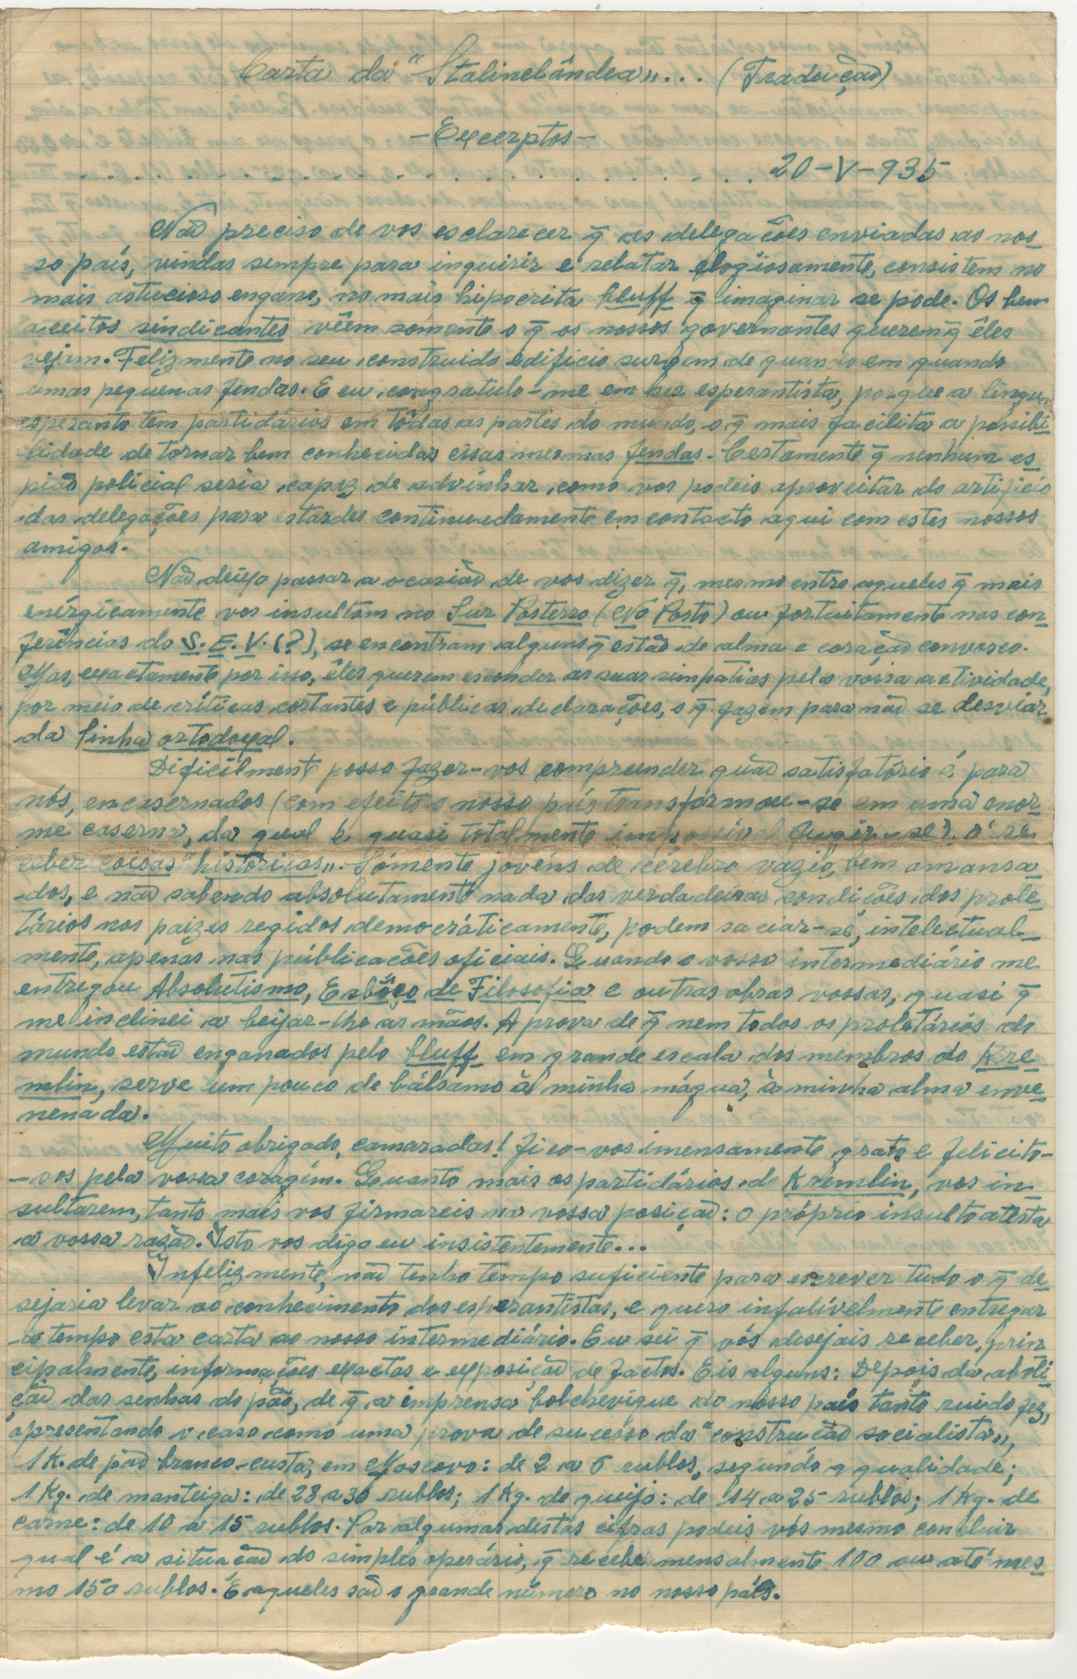 Carta da "Stalinelândea"... (Tradução)
-Excerptos-
. . . . . . . . . . . . . . . . . . . . 20-V-935
Não preciso de vos esclarecer q̃ as delegações enviadas ao nos-
so país, vindas sempre para inquirir e relatar elogiosamente, consistem no
mais astucioso engano, no mais hipócrita bluff q̃ imaginar se pode. Os bem
aceitos sindicantes vêem somente o q̃ os nossos governantes querem q̃ êles
vejam. Felizmente no seu construido edificio surgem de quando em quando
umas pequenas fendas. E eu congratulo-me em ser esperantista, porque a língua
esperanto tem partidários em tôdas as partes do mundo, o q̃ mais facilita a possibi-
lidade de tornar bem conhecidas essas mesmas fendas. Certamente q̃ nenhum es-
pião policial seria capaz de advinhar como vos podeis aproveitar do artificio
das delegações para estardes continuadamente em contacto aqui com estes nossos
amigos.
Não deixo passar a ocasião de vos dizer q̃, mesmo entre aqueles q̃ mais
enérgicamente vos insultam no Sur Posteno (No Posto) ou fortuitamente nas con-
ferências do S.E.V. (?), se encontram alguns q̃ estão de alma e coração convosco.
Mas, exactamente por isso, êles querem esconder as suas simpatias pela vossa actividade,
por meio de críticas cortantes e públicas declarações, o q̃ fazem para não se desviar
da linha ortodoxal.
Dificilmente posso fazer-vos compreender quão satisfatório é para
nós, encasernados (com efeito o nosso país transformou-se em uma enor-
me caserna, da qual é quasi totalmente impossível fugir-se) o re-
ceber coisas "históricas". Sòmente jovens de cérebro vazio, bem amansa-
dos, e não sabendo absolutamente nada das verdadeiras condições dos prole-
tários nos paizes regidos democráticamente, podem saciar-se, intelectual-
mente, apenas nas públicações oficiais. Quando o vosso intermediário me
entregou Absolutismo, Esbôço de Filosofia e outras obras vossas, quasi q̃
me inclinei a beijar-lhe as mãos. A prova de q̃ nem todos os proletários do
mundo estão enganados pelo bluff em grande escala dos membros do Kre-
mlin, serve um pouco de bálsamo à minha mágua, à minha alma enve-
nenada.
Muito obrigado, camaradas! Fico-vos imensamente grato e felicito-
-vos pela vossa coragem. Quanto mais os partidários do Kremlin, vos in-
sultarem, tanto mais vos firmareis na vossa posição: o próprio insulto atesta
a vossa razão. Isto vos digo eu insistentemente...
Infelizmente, não tenho tempo suficiente para escrever tudo o q̃ de-
sejaria levar ao conhecimento dos esperantistas, e quero infalívelmente entregar
a tempo esta carta ao nosso intermediário. Eu sei q̃ vós desejais receber, prin
cipalmente, informações exactas e exposição de factos. Eis alguns: Depois da aboli-
ção das senhas do pão, de q̃ a imprensa bolchevique do nosso país tanto ruido fez,
apresentando o caso como uma prova de sucesso da "construção socialista",
1 K. de pão branco custa, em Moscovo: de 2 a 6 rublos, segundo a qualidade;
1 Kg. de manteiga: de 28 a 36 rublos; 1 Kg. de queijo: de 14 a 25 rublos; 1 Kg. de
carne: de 10 a 15 rublos. Por algumas destas cifras podeis vós mesmo concluir
qual é a situação do simples operário, q̃ recebe mensalmente 100 ou até mes-
mo 150 rublos. E aqueles são o grande número no nosso país.